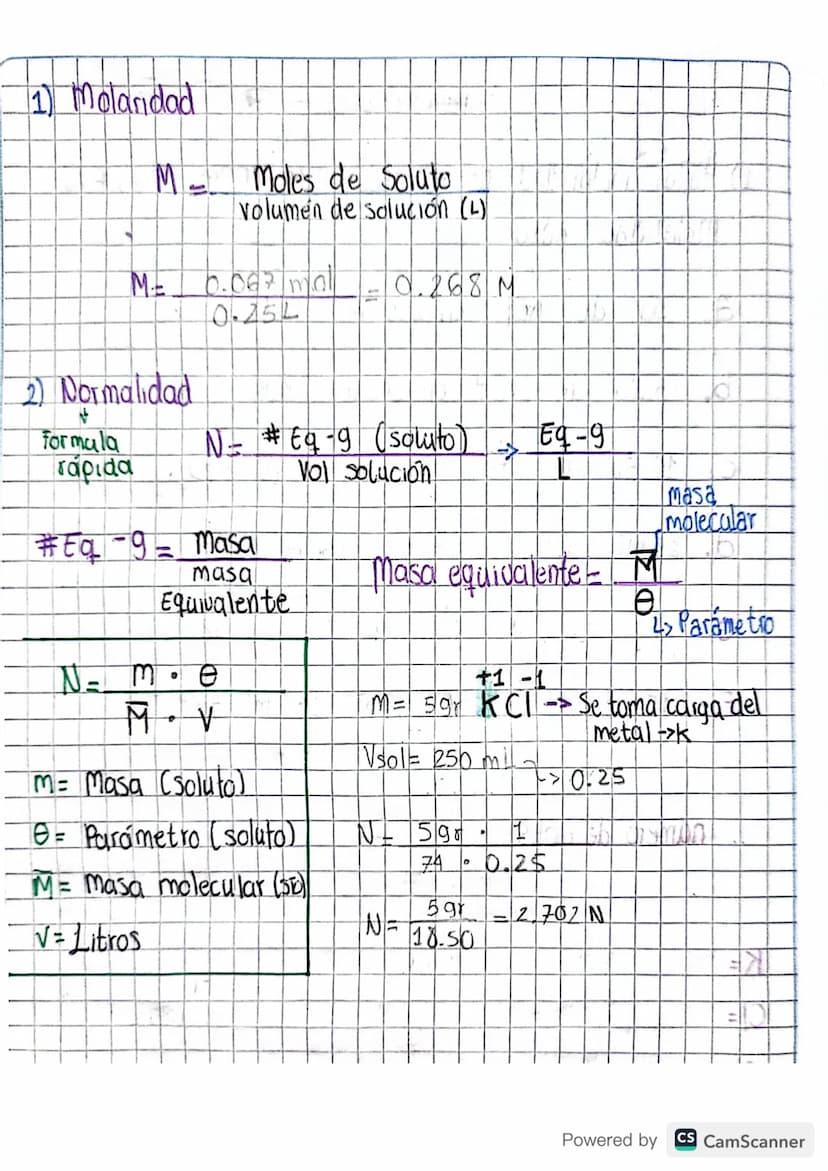 1) Molaridad
M = Moles de Soluto
volumen de solución (L)
M = 0.067 mol = 0.268 M
0.25L
2) Normalidad
Formula
rápida
N = # Eq-g (soluto) → Eq-g
Vol solución L
#Eq-g = Masa
masa
Equivalente
Masa equivalente = M̅
θ
masa
molecular
↳ Parámetro
N = m . θ
M̅ . V
m = Masa (soluto)
θ = Parámetro (soluto)
M̅ = Masa molecular (st)
V = Litros
+1 -1
m = 5gr KCl -> Se toma carga del
metal -> k
Vsol = 250 mL
↳ 0.25
N = 5gr . 1
74 . 0.25
N = 5gr = 2.702 N
18.50
Powered by CS CamScanner